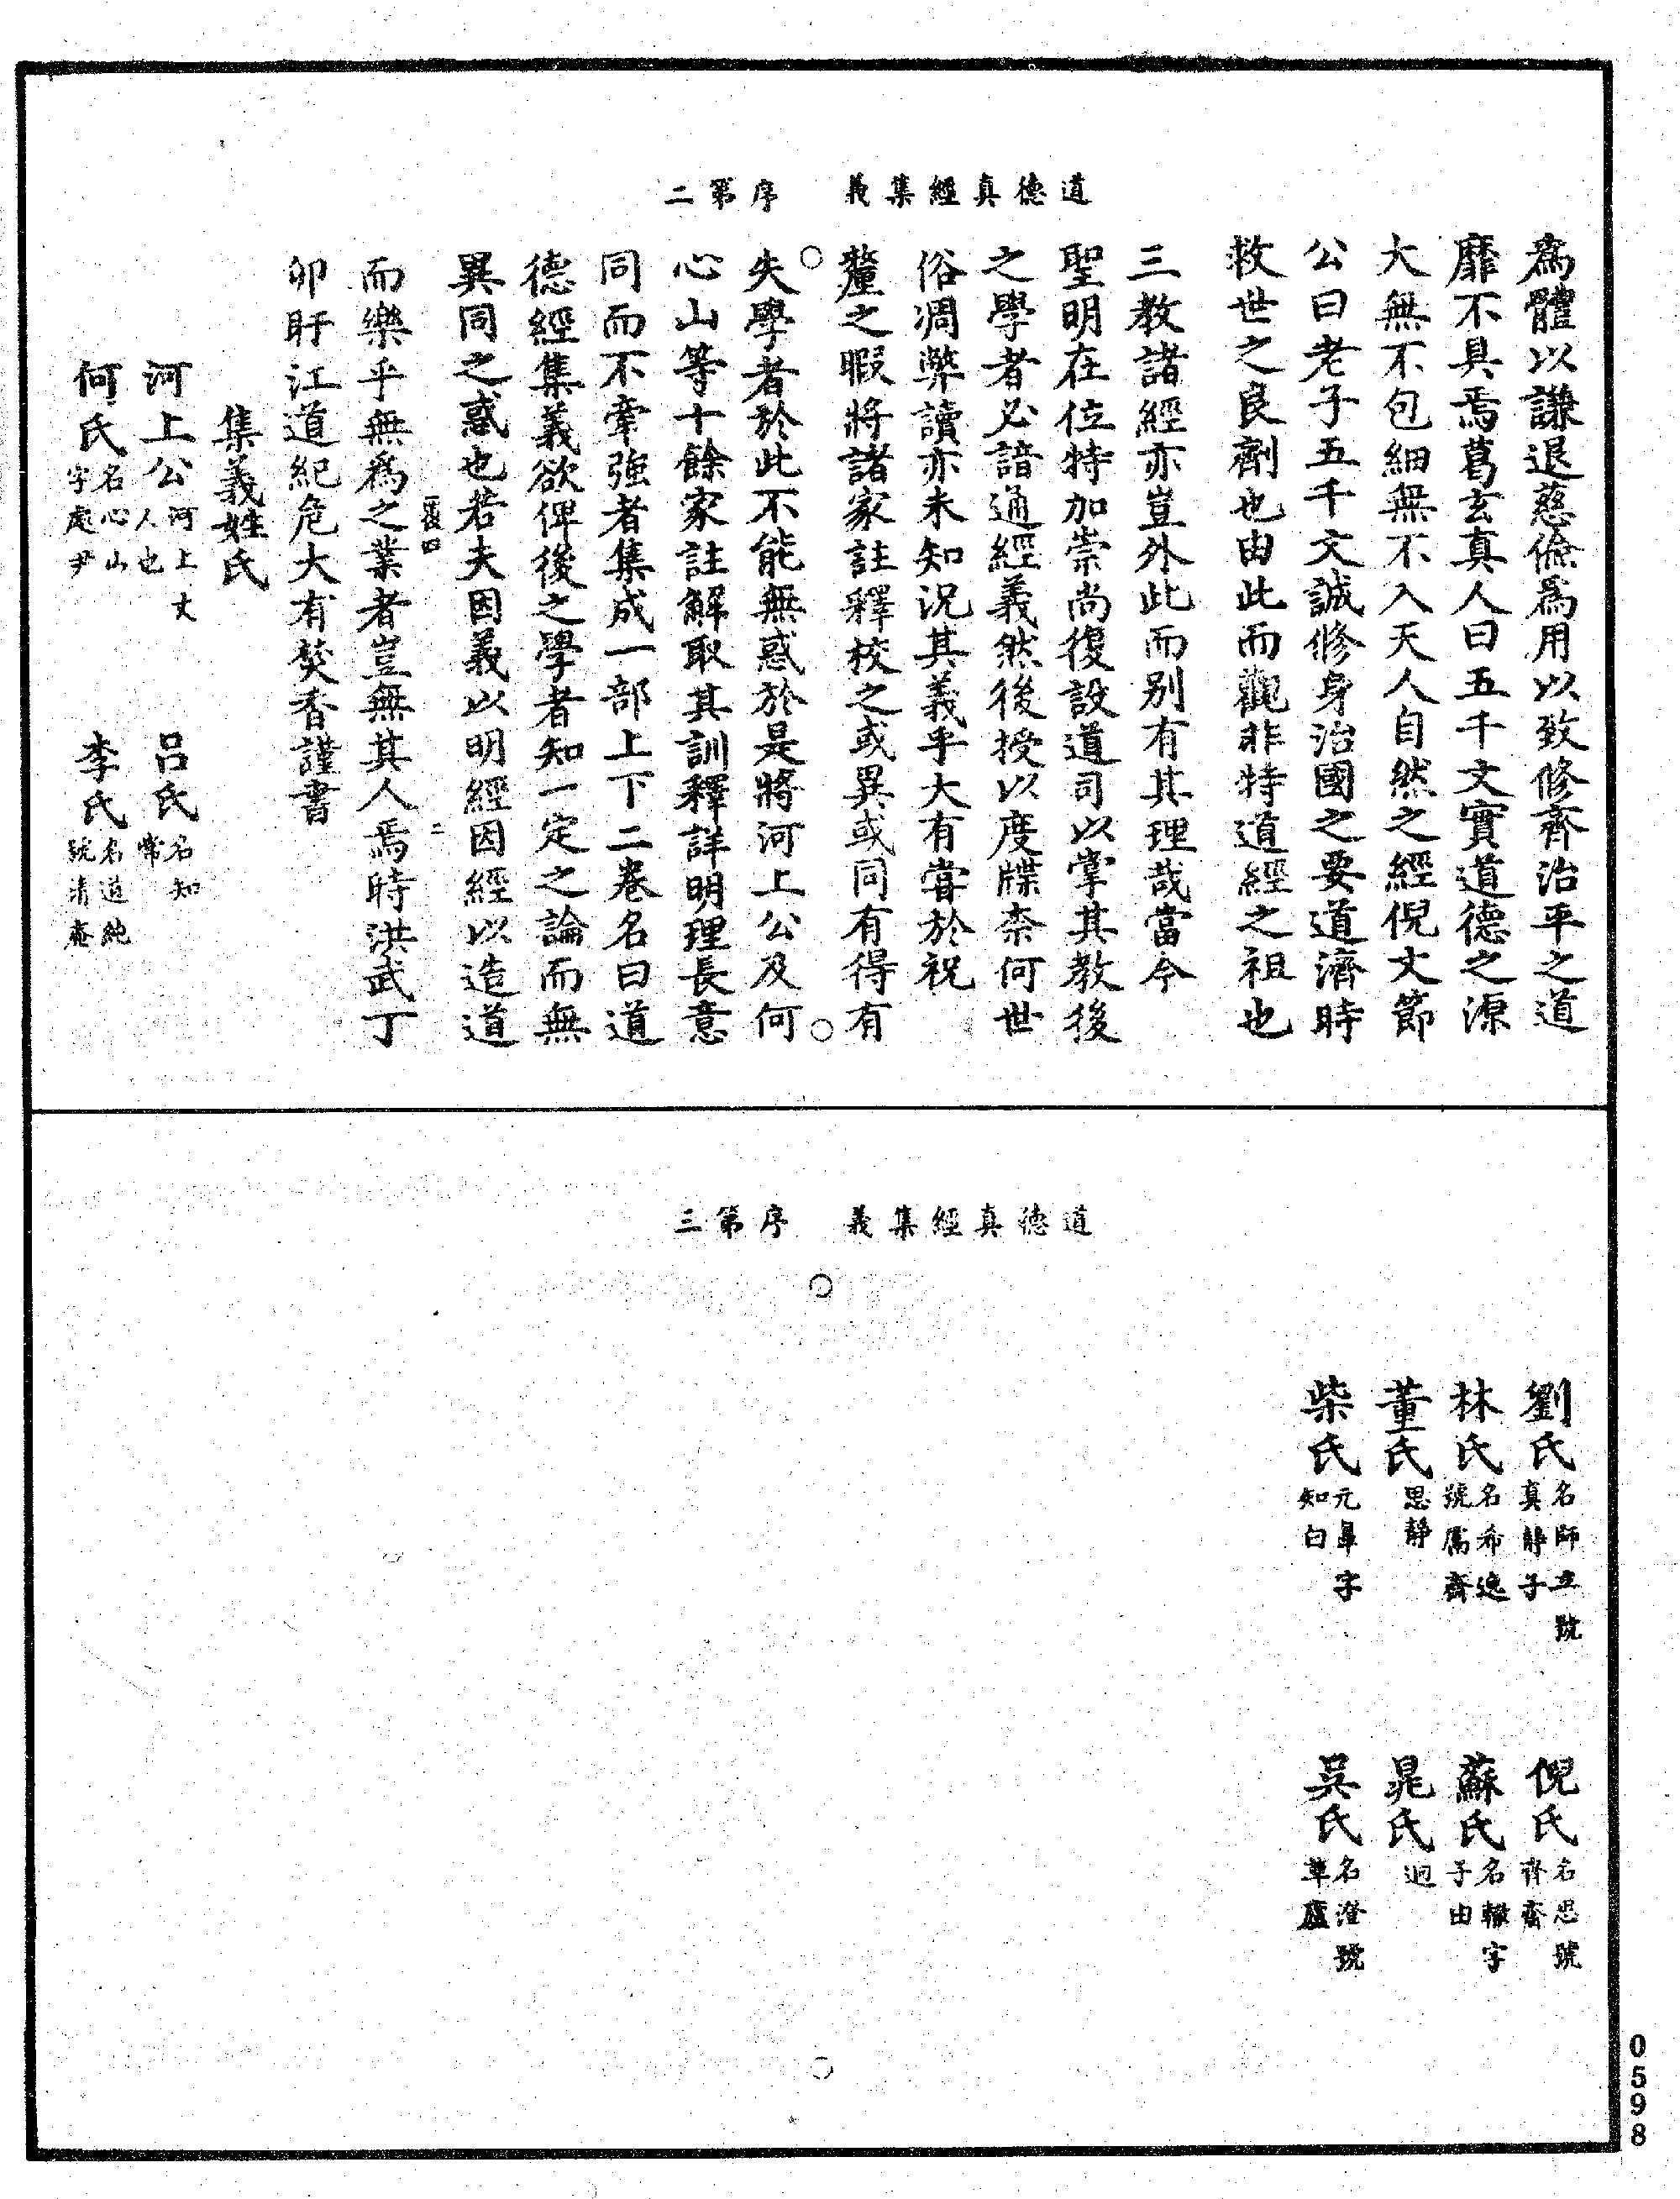 道德真經集義　序第二
為體以謙退慈儉為用以致修齊治平之道
靡不具焉葛玄真人曰五千文實道德之源
大無不包細無不入天人自然之經倪文節
公曰老子五千文誠修身治國之要道濟時
救世之良劑也由此而觀非特道經之祖也
三教諸經亦豈外此而别有其理哉當今
聖明在位特加崇尚復設道司以掌其教後
之學者必諳通經義然後授以度牒柰何世
俗凋弊讀亦未知況其義乎大有嘗於祝
釐之暇將諸家註釋校之或異或同有得有
失學者於此不能無惑於是將河上公及何
心山等十餘家註解取其訓釋詳明理長意
同而不牽強者集成一部上下二卷名曰道
德經集義欲俾後之學者知一定之論而無
異同之惑也若夫因義以明經因經以造道
二
而樂乎無為之業者豈無其人焉時洪武丁
卯盱江道紀危大有焚香謹書
集義姓氏
河上公河上丈人也　呂氏名知常
何氏名心山字處尹　李氏名道純號清菴
道德真經集義　序第三
劉氏名師立號真靜子　倪氏名思號齊齋
林氏名希逸號鬳齋　蘇氏名轍字子由
董氏思靜　晁氏迥
柴氏元臯字知白　吳氏名澄號草廬
0598